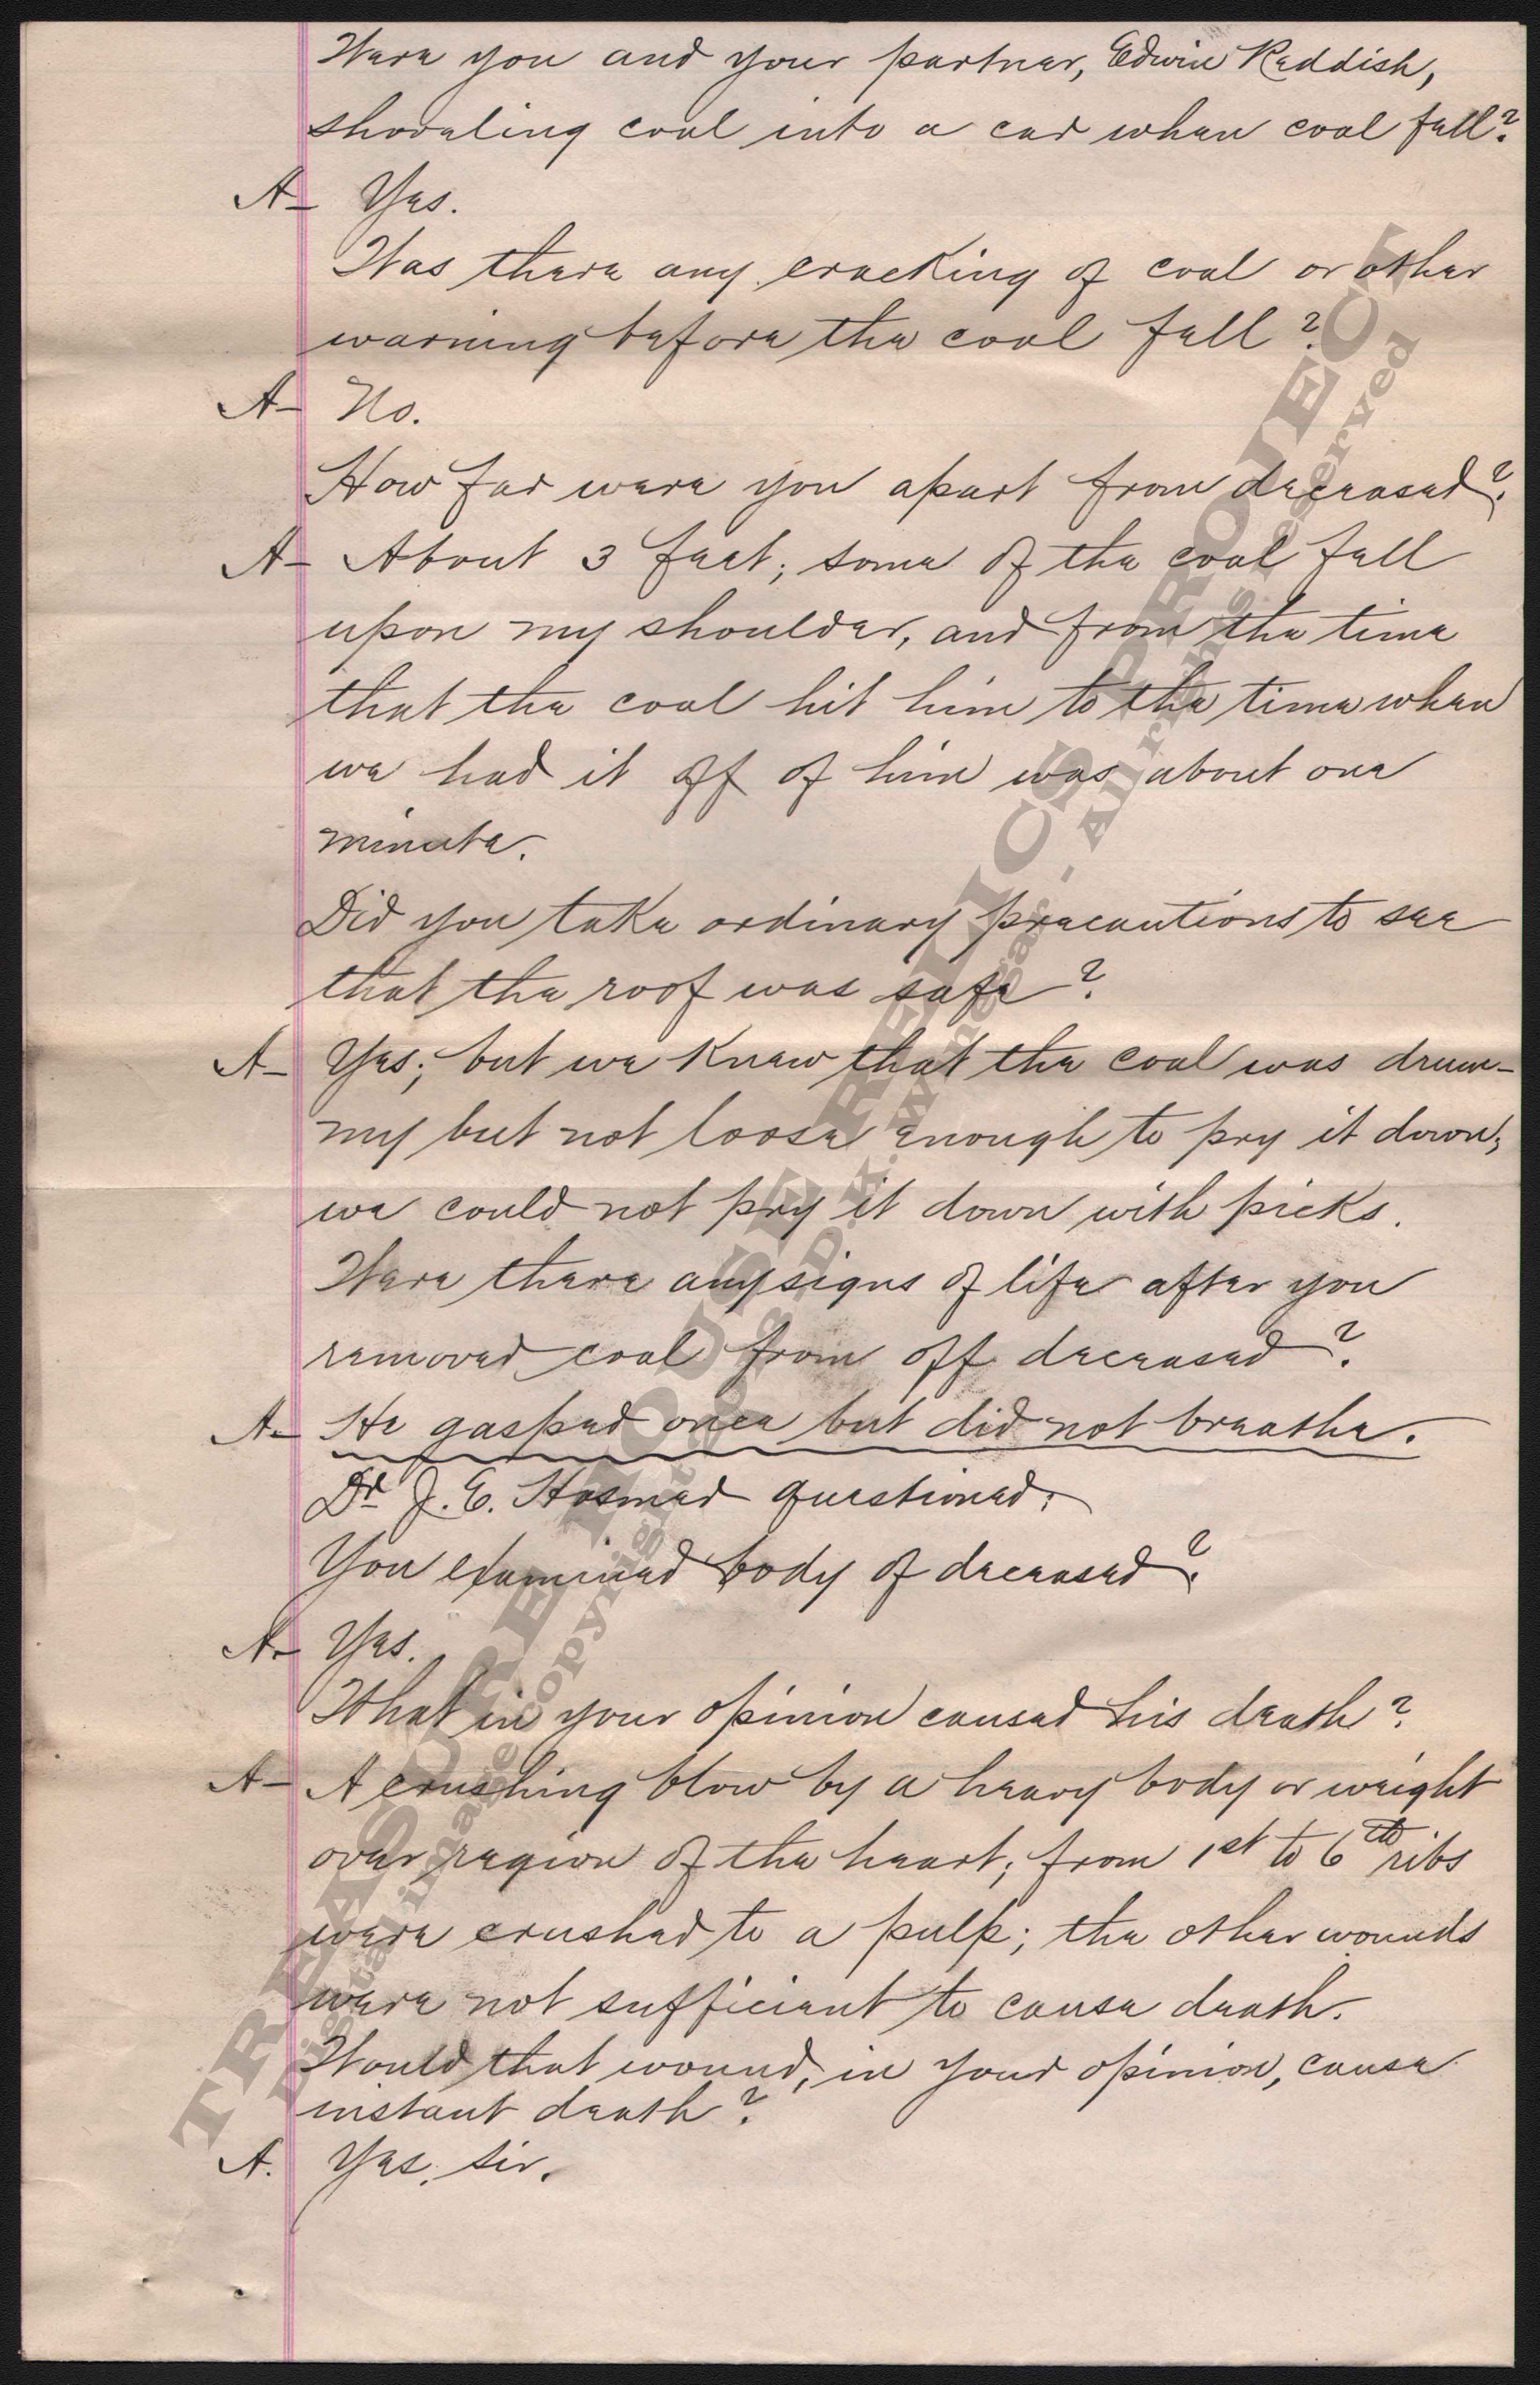 Were you and your partner, Edwin Reddish,
shoveling coal into a car when coal fell?
A- Yes.
Was there any cracking of coal or other
warning before the coal fell?
A- No.
How far were you apart from deceased?
A- About 3 feet; some of the coal fell
upon my shoulder, and from the time
that the coal hit him to the time when
we had it off of him was about one
minute.
Did you take ordinary precautions to see
that the roof was safe?
A- Yes; but we knew that the coal was drum-
my but not loose enough to pry it down;
we could not pry it down with picks.
Were there any signs of life after you
removed coal from off deceased?
A- He gasped once but did not breathe.
Dr J. E. Hosmer questioned:
You examined body of deceased?
A- Yes.
What in your opinion caused his death?
A- A crushing blow by a heavy body or weight
over region of the heart; from 1st to 6th ribs
were crushed to a pulp; the other wounds
were not sufficient to cause death.
Would that wound, in your opinion, cause
instant death?
A. Yes, sir.
TREASURE HOUSE RELICS PROJECT
Digital image copyright 2008 D.K. Winegar - All rights reserved